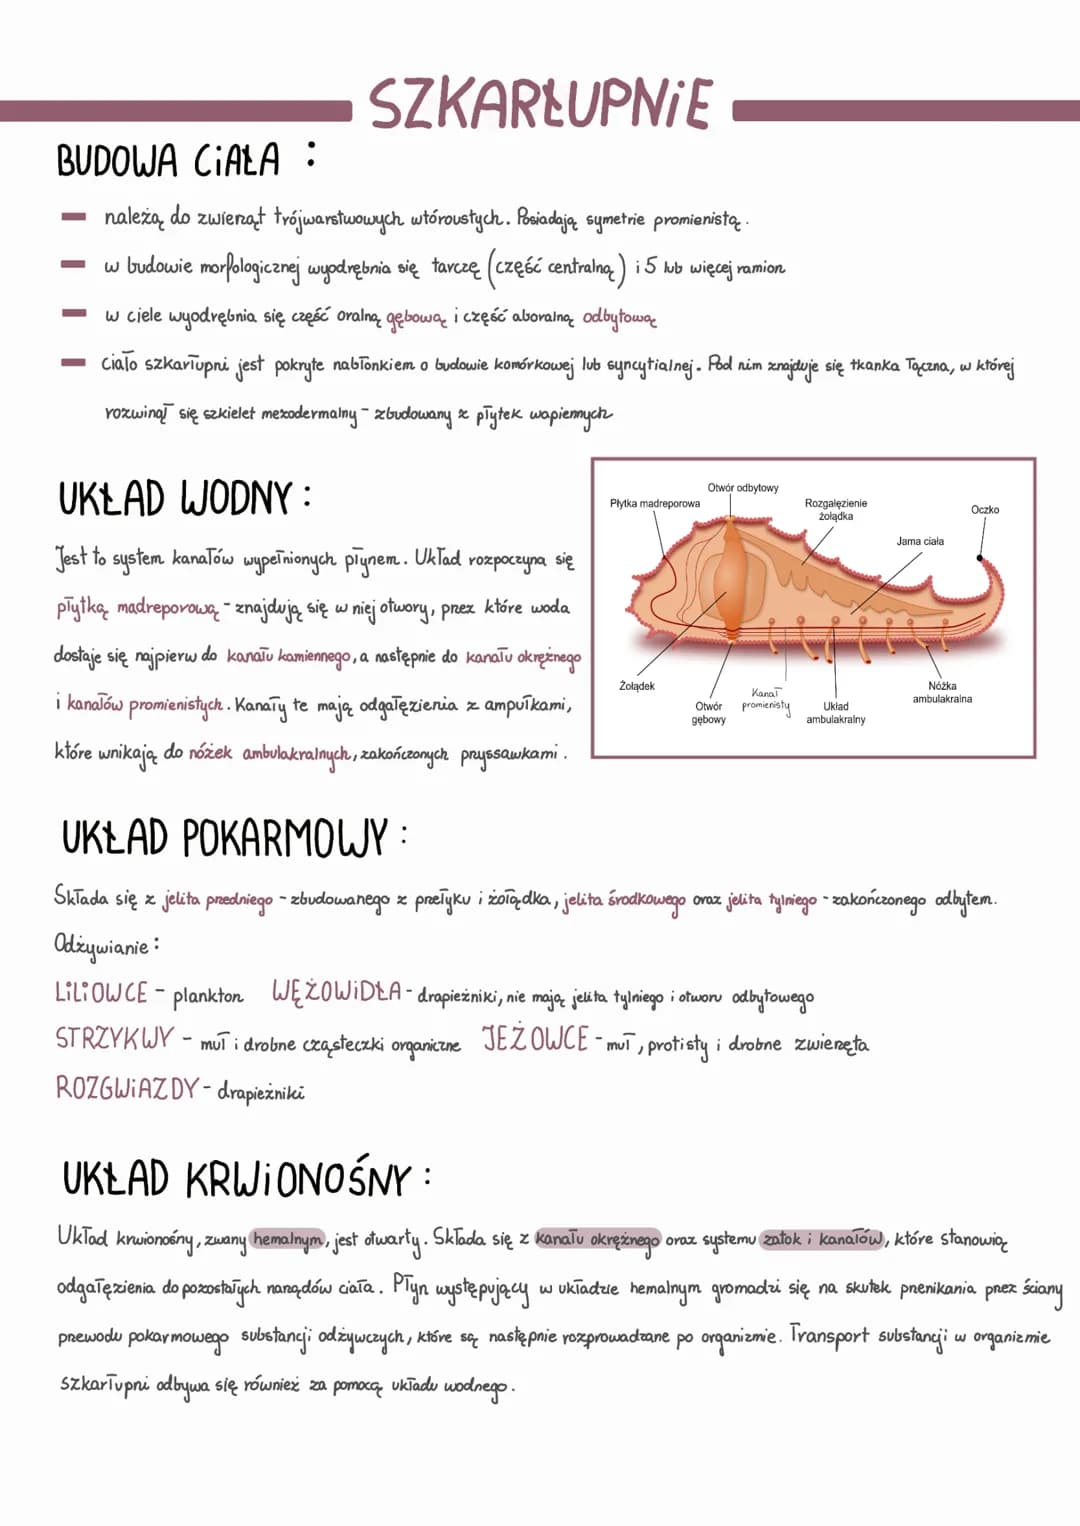 SZKARŁUPNIE
BUDOWA CIAŁA :
- należą do zwierząt trójwarstwowych wtóroustych. Posiadają symetrie promienistą.
- w budowie morfologicznej wyodrębnia się tarczę (część centralną) i 5 lub więcej ramion
- w ciele wyodrębnia się część oralną gębową i część aboralną odbytową
- ciało szkarłupni jest pokryte nabłonkiem o budowie komórkowej lub syncytialnej. Pod nim znajduje się tkanka łączna, w której
rozwinął się szkielet mezodermalny - zbudowany z płytek wapiennych
UKŁAD WODNY :
Jest to system kanałów wypełnionych płynem. Układ rozpoczyna się
płytką madreporową - znajdują się w niej otwory, przez które woda
dostaje się najpierw do kanału kamiennego, a następnie do kanału okrężnego
i kanałów promienistych. Kanały te mają odgałęzienia z ampułkami,
które wnikają do nóżek ambulakralnych, zakończonych przyssawkami.
Otwór odbytowy
Płytka madreporowa
Rozgałęzienie
żołądka
Oczko
Jama ciała
Żołądek
Otwór
gębowy
Kanał
promienisty
Układ
ambulakralny
Nóżka
ambulakralna
UKŁAD POKARMOWY :
Składa się z jelita przedniego - zbudowanego z przełyku i żołądka, jelita środkowego oraz jelita tylniego - zakończonego odbytem.
Odżywianie :
LILIOWCE - plankton WĘŻOWIDŁA - drapieżniki, nie mają jelita tylniego i otworu odbytowego
STRZYKWY - muł i drobne cząsteczki organiczne JEŻOWCE - muł, protisty i drobne zwierzęta
ROZGWIAZDY - drapieżniki
UKŁAD KRWIONOŚNY :
Układ krwionośny, zwany hemalnym, jest otwarty. Składa się z kanału okrężnego oraz systemu zatok i kanałów, które stanowią
odgałęzienia do pozostałych narządów ciała. Płyn występujący w układzie hemalnym gromadzi się na skutek przenikania przez ściany
przewodu pokarmowego substancji odżywczych, które są następnie rozprowadzane po organizmie. Transport substancji w organizmie
szkarłupni odbywa się również za pomocą układu wodnego.